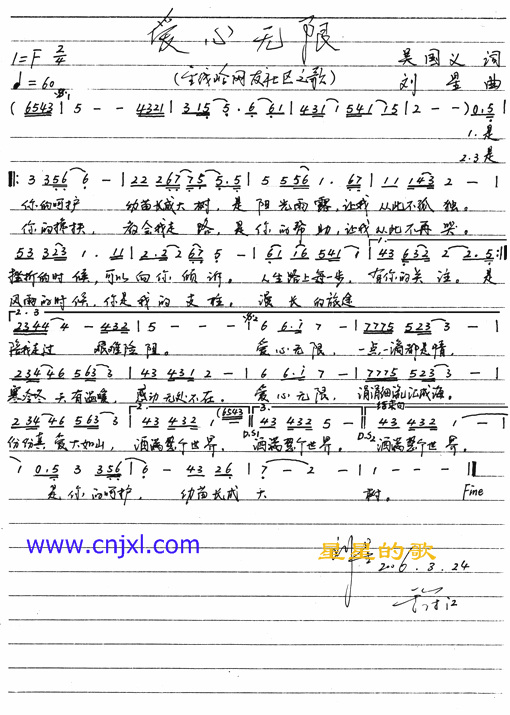 爱心无限
1=F 2/4
♩=60
吴国义 词
刘星 曲
( 6543 | 5 - - 4321 | 315 5. 6 61 | 431 1 541 15 | 2 - - ) 0.5 |
1.是
2.3是
‖: 3 356 6 - | 22 267 75 5.5 | 5 556 1. 67 | 11 143 2 - |
你的呵护 幼苗长成大树，是阳光雨露，让我从此不孤独。
你的搀扶， 教会我走路，是你的帮助，让我从此不再哭。
53 323 1. 11 | 2.2 2 67 5 - | 61 16 541 | 43 632 2 2.5 :‖
挫折的时候，可以向你倾诉。 人生路上每一步， 有你的关注。是
风雨的时候，你是我的支柱。 漫长的旅途
2.3
2344 4 - 432 | 5 - - - | 6 66.i 7 - | 7775 523 3 - |
陪我走过 艰难险阻。 爱心无限， 一点一滴都是情，
234 46 563 3 | 43 431 2 - | 6 66.i 7 - | 7775 523 3 - |
寒冷冬天有温暖，感动无处不在。 爱心无限， 涓涓细流汇成海。
结束句
234 46 563 3 | 43 432 1 (6543 | 43 432 5 - ‖ 43 432 1 - |
份份真爱大如山， 洒满整个世界， D.S1 洒满整个世界。 D.S2 洒满整个世界。
1 0.5 3 356 | 6 - 43 26 | 7 - 2 - | 1 - - - ‖
是你的呵护， 幼苗长成大树。 Fine
www.cnjxl.com
星星的歌
2006.3.24